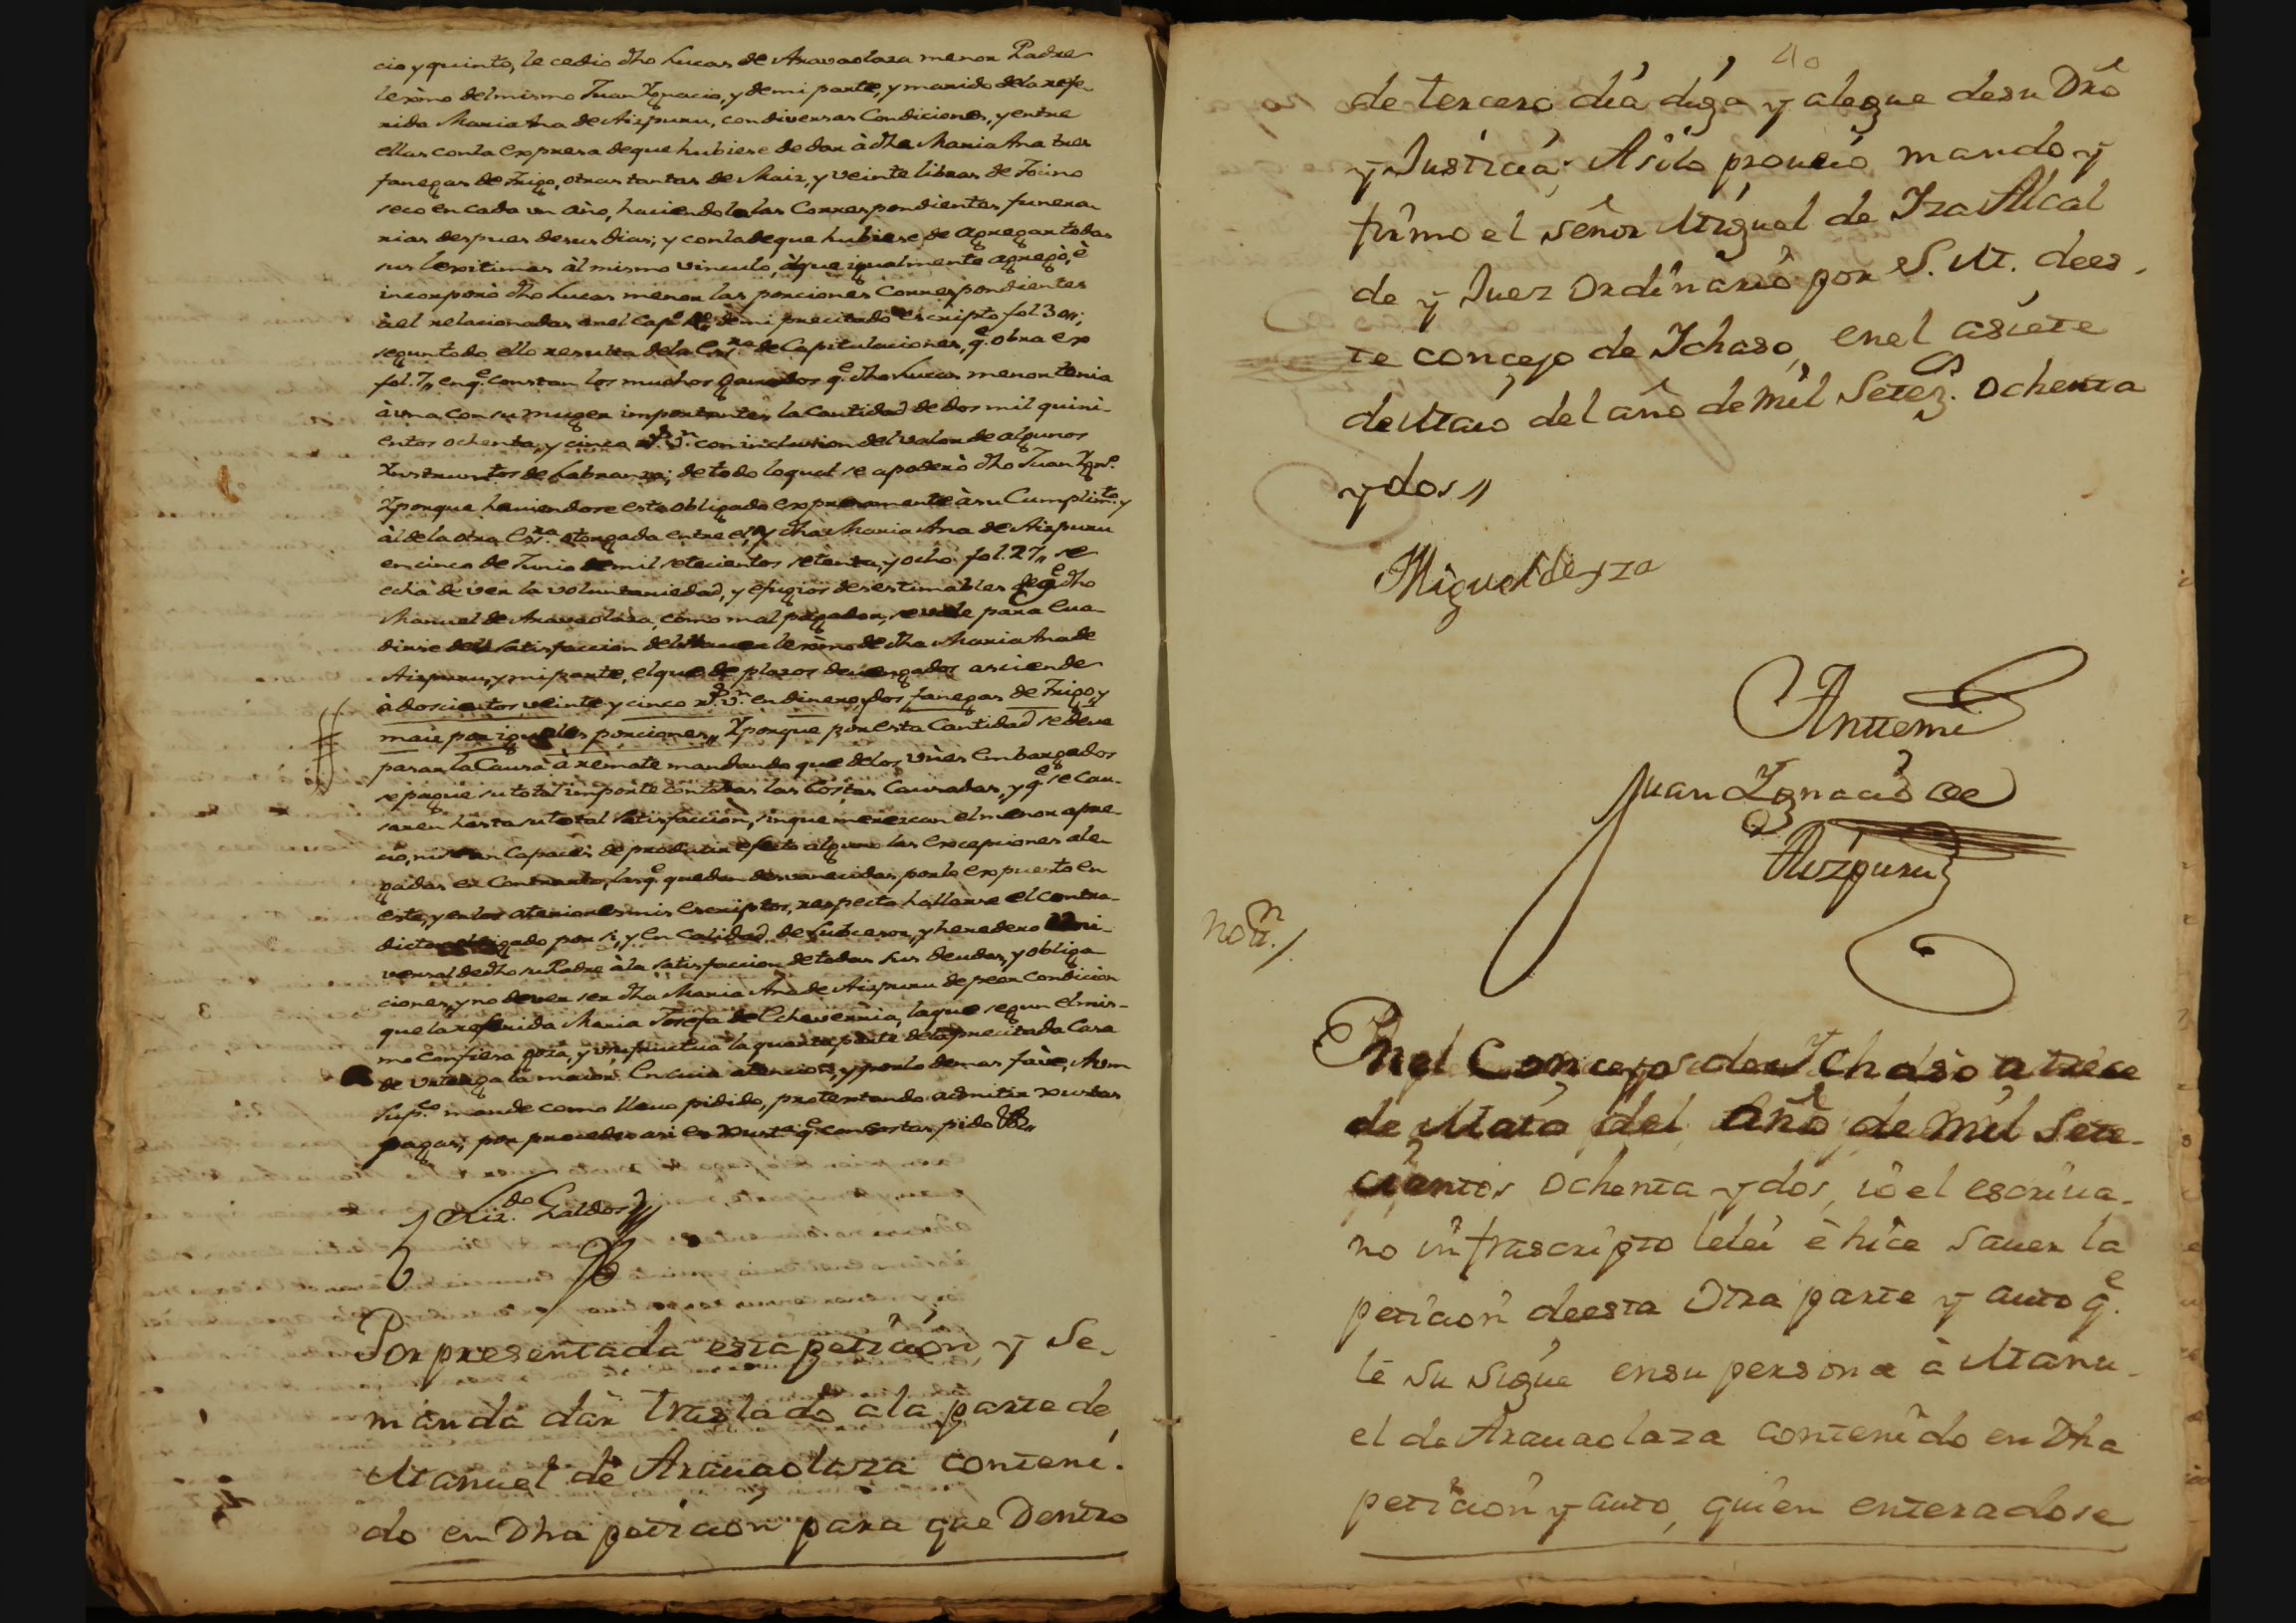 cio y quinto, le cedio dho Lucas de Aravaolaza menor Padre
lexmo del mismo Juan Ygnacio, y de mi parte, y marido dela refe-
rida Maria Ana de Aizpuru, con diversas Condiciones, y entre
ellas conla expresa de que hubiese de dar à dha Maria Ana tres
fanegas de Trigo, otras tantas de Maiz, y veinte libras de Tocino
seco en cada un año, haciendole las Correspondientes funera-
rias despues de sus dias; y conla de que hubiese de agregar todas
sus lexitimas àl mismo vinculo, à que igualmente agregò, è
incorporò dho Lucas menor las porciones Correspondientes
à el relacionadas en el Cap.º de mi precitado escripto fol 30,,;
segun todo ello resulta dela Esr.ra de Capitulaciones, q.e obra ex
fol. 7,, en q.e constan los muchos ganados q.e dho Lucas menor tenia
à una con su muger importantes la Cantidad de dos mil quini-
entos ochenta, y cinco r.s v.n con inclusion del valor de algunos
Ynstrumtos de Labranza; de todo loqual se apoderò dho Juan Ygn.º
Y porque haviendose este obligado expresamente à su Cumplim.to y
àl dela otra Esr.ra otorgada entre el, y dha Maria Ana de Aizpuru
en cinco de Junio de mil setecientos setenta, y ocho fol. 27,, se
echa de ver la voluntariedad, y efugios desestimables de q.e dho
Manuel de Aravaolaza, como mal pagador, se vale para Eva-
dirse dela satisfaccion del haver lexmo de dha Maria Ana de
Aizpuru, y mi parte, el que de plazos devengados asciende
à doscientos veinte y cinco r.s v.n en dinero, y dos fanegas de Trigo, y
maiz por iguales porciones,, Y porque por esta Cantidad se deve
pasar la Causa à remate mandando que delos vienes Embargados
se pague su total importe con todas las Costas Causadas, y q.e se Cau-
saren hasta su total satisfaccion, sin que merezcan el menor apre-
cio, ni sean Capaces de producir efecto alguno las excepciones ale-
gadas en Contrario, las q.e quedan desvanecidas por lo expuesto en
este, y en los anteriores mis escriptos, respecto hallarse el contra-
dictor obligado por si, y en calidad de subcesor, y heredero uni-
versal de dho su Padre à la satisfaccion de todas sus deudas, y obliga
ciones, y no dever ser dha Maria Ana de Aizpuru de peor condicion
que la referida Maria Josefa de Echaverria, la que segun el mis-
mo confiesa goza, y usufructua la quarta parte dela precitada Casa
de Urteaga la maior. En cuia atencion, y por lo demas fabe, Avm
Sup.co mande como llevo pidido, protextando admitir xustas
pagas; por proceder asi en xust.a q.e con costas pido &,,
Liz.do Galdos
Por presentada esta peticion, y Se-
manda dar traslado ala parte de
Manuel de Arauaolaza conteni-
do en Dha peticion para que Dentro
40
de tercero dia diga y alegue desu Dro
y Justicia; Asilo proueio mando y
firmo el señor Miguel de Yza Alcal
de y Juez Ordinario por S. M. dees-
te concejo de Ychaso, enel asiete
de Maio del año de mil Setez.s ochenta
y dos,,
Miguel de Yza
Antemi
Juan Ygnacio de
Aizpuru
Not.n /
Enel Concejo de Ychaso a trece
de Maio del año de mil Sete-
cientos ochenta y dos, io el escriua-
no infrascripto lelei è hice sauer la
peticion deesta Otra parte y auto q.e
le su sigue ensu persona à Manu-
el de Arauaolaza contenido en Dha
peticion y auto, quien enteradose